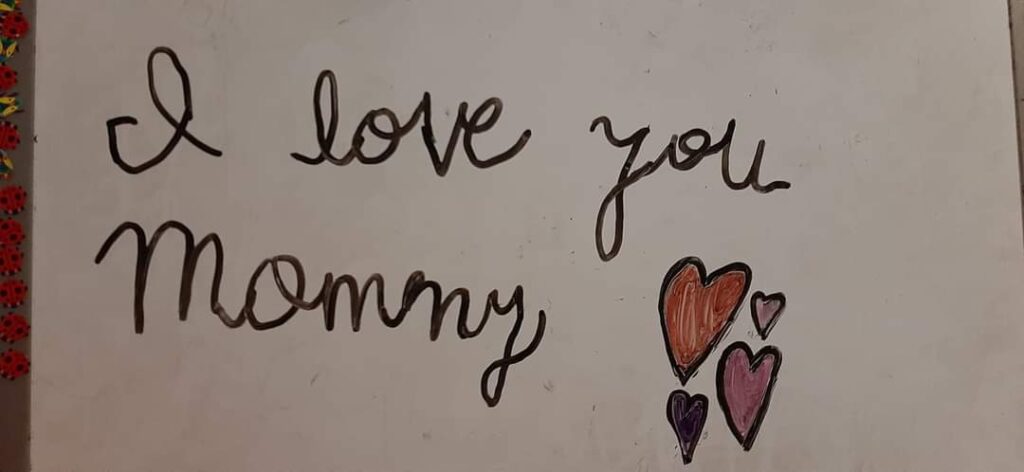 I love you
Mommy